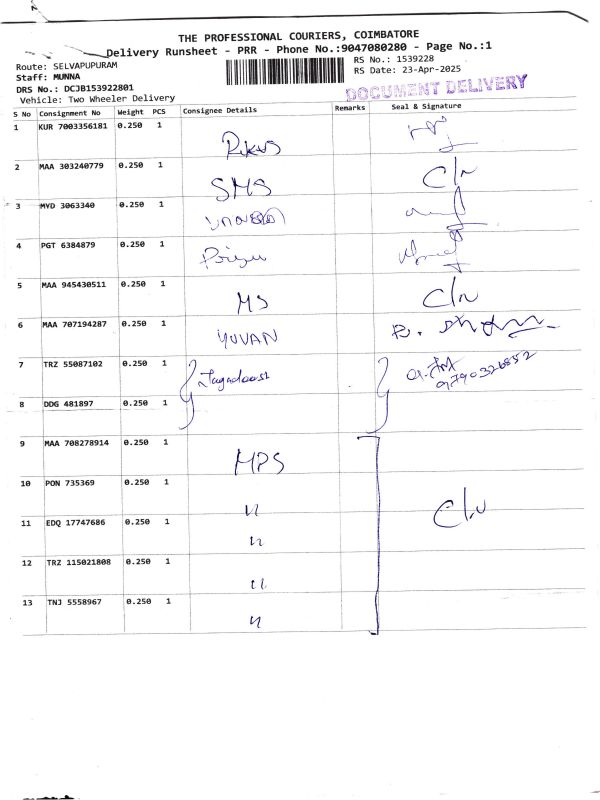 THE PROFESSIONAL COURIERS, COIMBATORE
Delivery Runsheet - PRR - Phone No.:9047080280 - Page No.:1
Route: SELVAPUPURAM
RS No.: 1539228
Staff: MUNNA
RS Date: 23-Apr-2025
DRS No.: DCJB153922801
DOCUMENT DELIVERY
Vehicle: Two Wheeler Delivery
S No Consignment No Weight PCS Consignee Details Remarks Seal & Signature
1 KUR 7003356181 0.250 1
2 MAA 303240779 0.250 1 SMS
3 MYD 3063340 0.250 1
4 PGT 6384879 0.250 1 Priya
5 MAA 945430511 0.250 1 MS
6 MAA 707194287 0.250 1 YUVAN
7 TRZ 55087102 0.250 1 9790326852
8 DDG 481897 0.250 1
9 MAA 708278914 0.250 1 MPS
10 PON 735369 0.250 1 "
11 EDQ 17747686 0.250 1 "
12 TRZ 115021808 0.250 1 "
13 TNJ 5558967 0.250 1 "